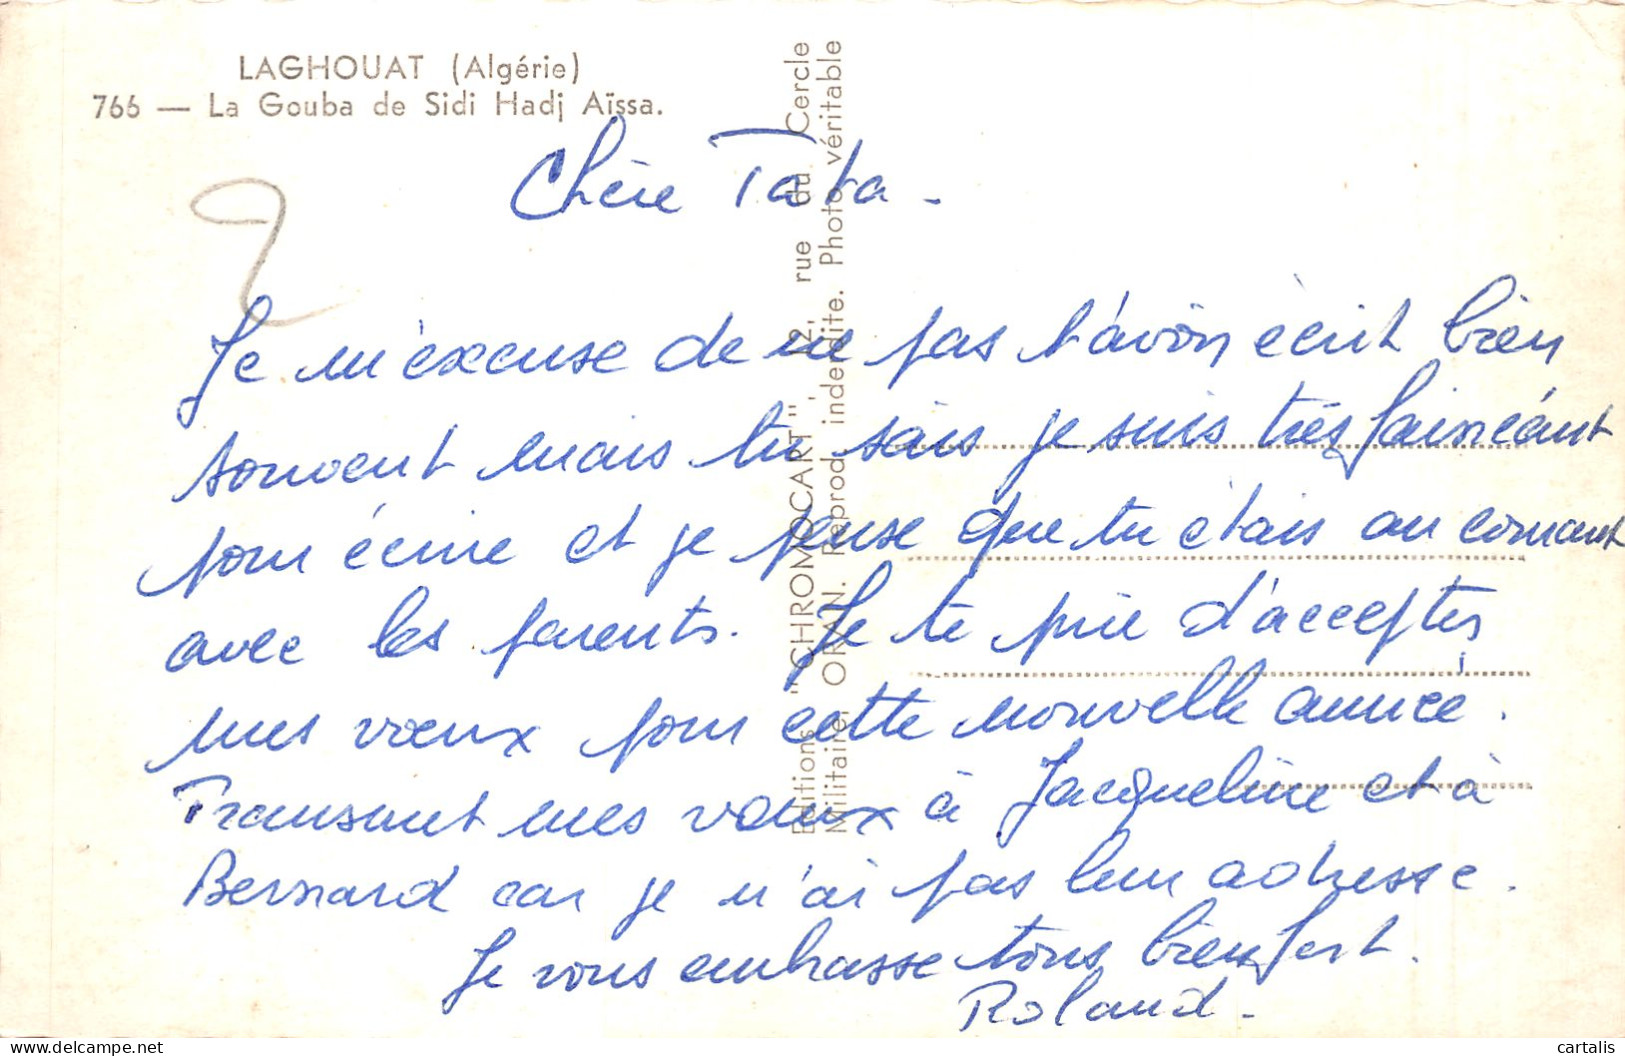 LAGHOUAT (Algérie)
766 — La Gouba de Sidi Hadj Aïssa.
Editions "CHROMOCART", 12, rue du Cercle
Militaire, ORAN. Reprod indeterdite. Photo véritable
Chère Tata -
Je m'excuse de ne pas t'avoir écrit bien
souvent mais tu sais je suis très fainéant
pour écrire et je pense que tu étais au courant
avec les parents. Je te prie d'accepter
mes vœux pour cette nouvelle année.
Transmet mes vœux à Jacqueline et à
Bernard car je n'ai pas leur adresse.
Je vous embrasse tous bien fort.
Roland -
delcampe.net
cartalis